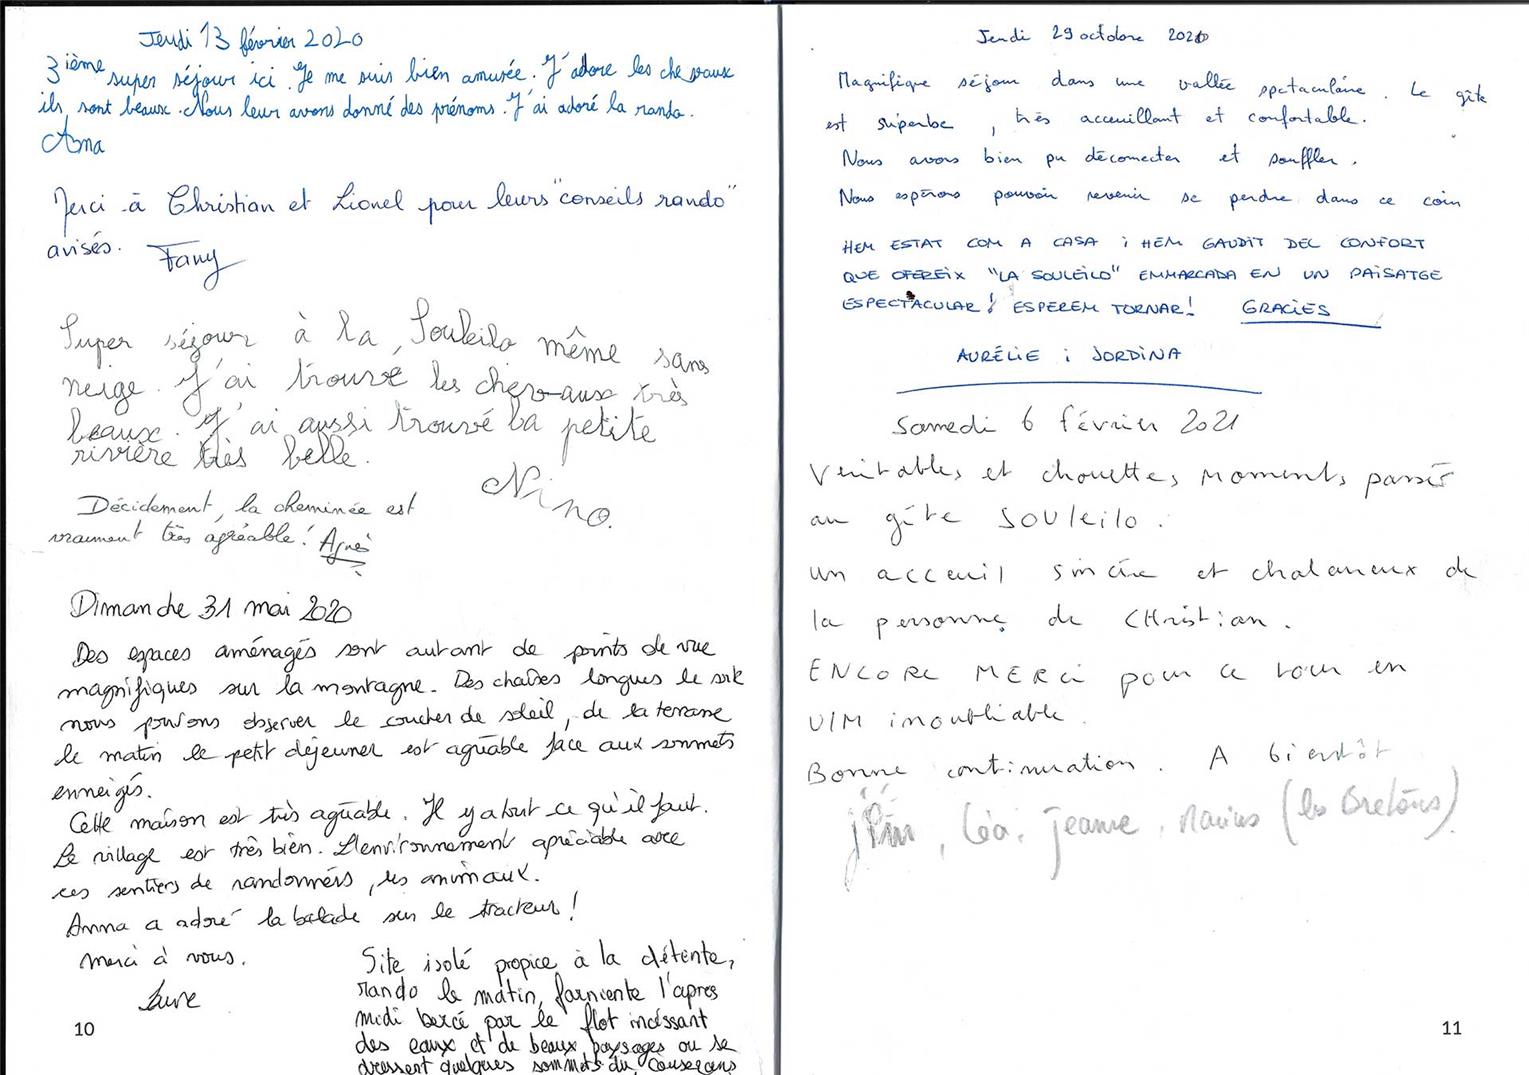 Jeudi 13 février 2020
3ième super séjour ici. Je me suis bien amusée. J'adore les chevaux
ils sont beaux. Nous leur avons donné des prénoms. J'ai adoré la rando.
Ama
Merci à Christian et Lionel pour leurs "conseils rando"
avisés. Fany
Super séjour à la Souleilo même sans
neige. J'ai trouvé les chevaux très
beaux. J'ai aussi trouvé la petite
rivière très belle.
Nino.
Décidement, la cheminée est
vraiment très agréable! Agnès
Dimanche 31 mai 2020
Des espaces aménagés sont autant de points de vue
magnifiques sur la montagne. Des chaises longues le soir
nous pouvons observer le coucher de soleil, de la terrasse
le matin le petit déjeuner est agréable face aux sommets
enneigés.
Cette maison est très agréable. Il y a tout ce qu'il faut.
Le village est très bien. L'environnement apréciable avec
ces sentiers de randonnées, les animaux.
Anna a adoré la balade sur le tracteur!
merci à vous.
Laure
Site isolé propice à la détente,
rando le matin, farniente l'apres
midi bercé par le flot incéssant
des eaux et de beaux paysages ou se
dressent quelques sommets du Couserans
10
Jeudi 29 octobre 2020
Magnifique séjour dans une vallée spectaculaire. Le gîte
est superbe, très acceuillant et confortable.
Nous avons bien pu déconnecter et souffler.
Nous espérons pouvoir revenir se perdre dans ce coin
HEM ESTAT COM A CASA i HEM GAUDIT DEL CONFORT
QUE OFEREIX "LA SOULEILO" EMMARCADA EN UN PAISATGE
ESPECTACULAR! ESPEREM TORNAR! GRACIES
AURÉLIE i JORDINA
Samedi 6 février 2021
Veritables et chouettes moments passés
au gîte SOUleilo.
un acceuil sincère et chaleureux de
la personne de CHristian.
ENCORE MERCi pour ce tour en
UIM inoubliable.
Bonne continuation. A bientôt
Léa, Jeanne, Marius (les Bretons).
11